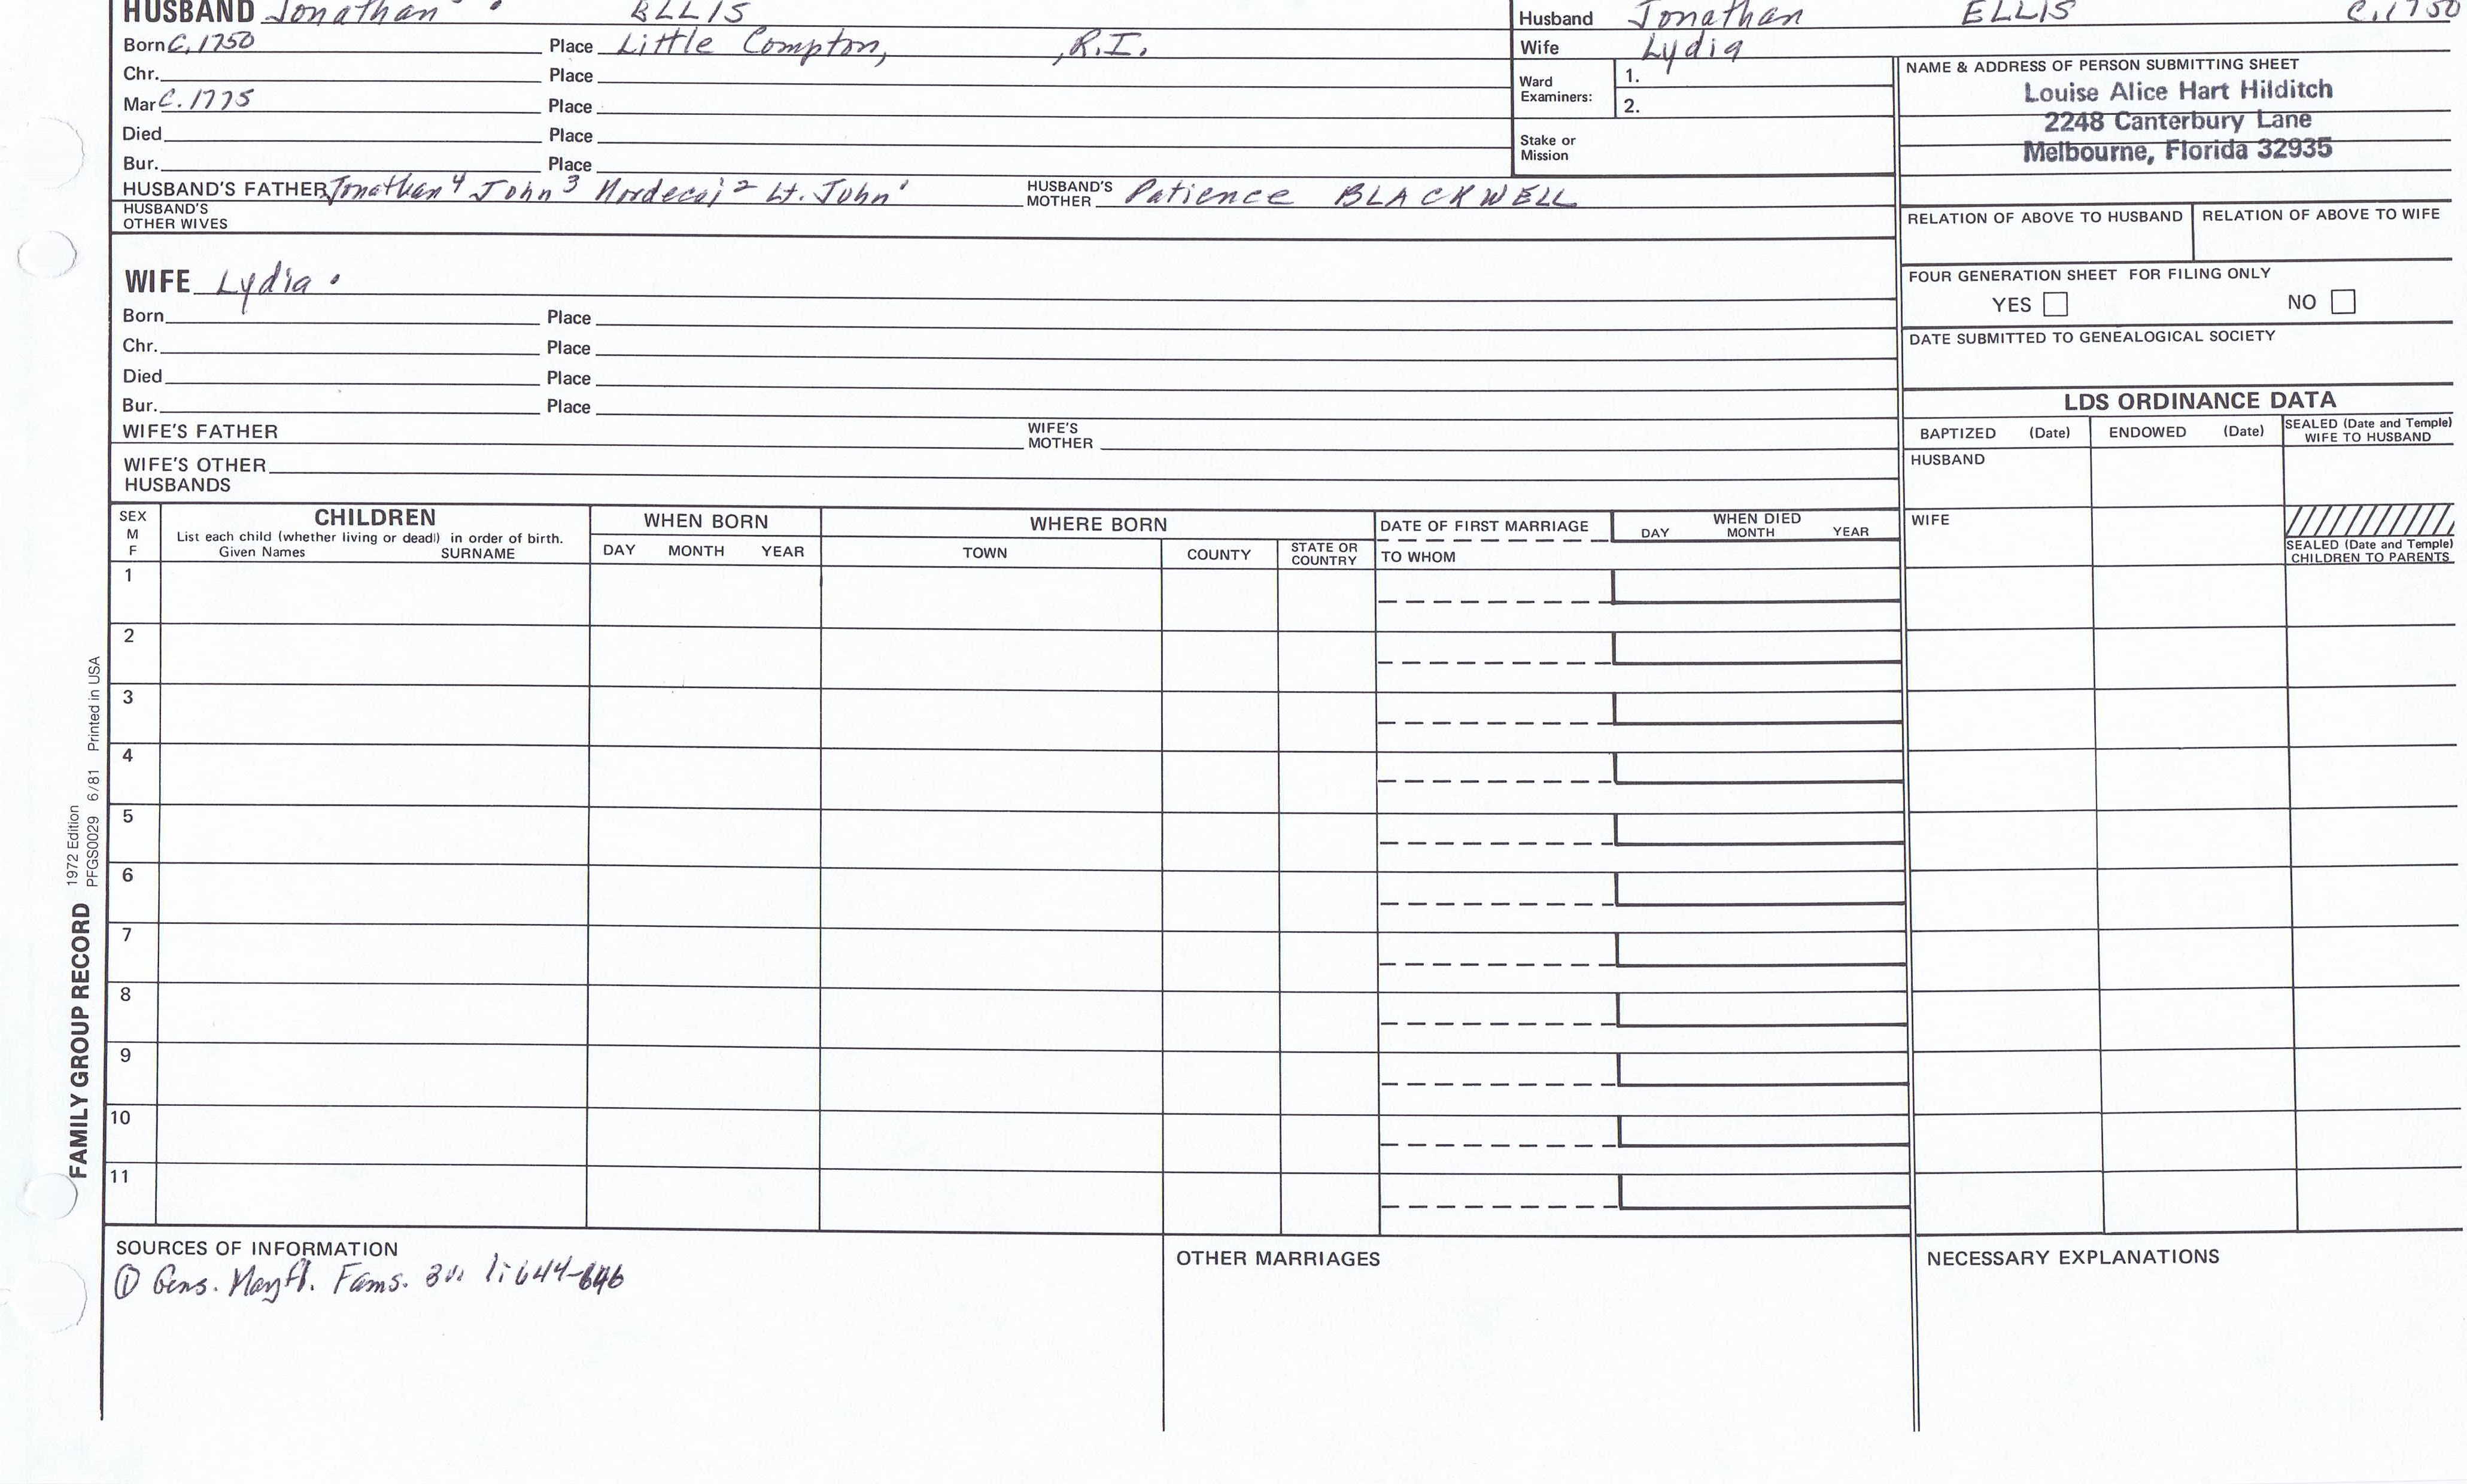 HUSBAND Jonathan ELLIS
Born C. 1750 Place Little Compton, , R.I.
Chr. Place
Mar C. 1775 Place
Died Place
Bur. Place
HUSBAND'S FATHER Jonathan 4 John 3 Mordecai 2 Lt. John 1 HUSBAND'S MOTHER Patience BLACKWELL
HUSBAND'S OTHER WIVES
Husband Jonathan ELLIS C. 1750
Wife Lydia
Ward Examiners: 1.
2.
Stake or Mission
NAME & ADDRESS OF PERSON SUBMITTING SHEET
Louise Alice Hart Hilditch
2248 Canterbury Lane
Melbourne, Florida 32935
RELATION OF ABOVE TO HUSBAND RELATION OF ABOVE TO WIFE
FOUR GENERATION SHEET FOR FILING ONLY
YES NO
DATE SUBMITTED TO GENEALOGICAL SOCIETY
WIFE Lydia
Born Place
Chr. Place
Died Place
Bur. Place
WIFE'S FATHER WIFE'S MOTHER
WIFE'S OTHER HUSBANDS
LDS ORDINANCE DATA
BAPTIZED (Date) ENDOWED (Date) SEALED (Date and Temple) WIFE TO HUSBAND
HUSBAND
WIFE
SEALED (Date and Temple) CHILDREN TO PARENTS
SEX M F
CHILDREN
List each child (whether living or dead) in order of birth.
Given Names SURNAME
WHEN BORN
DAY MONTH YEAR
WHERE BORN
TOWN COUNTY STATE OR COUNTRY
DATE OF FIRST MARRIAGE
TO WHOM
WHEN DIED
DAY MONTH YEAR
1
2
3
4
5
6
7
8
9
10
11
FAMILY GROUP RECORD 1972 Edition
PFGS0029 6/81 Printed in USA
SOURCES OF INFORMATION
① Gens. Mayfl. Fams. 1:644-646
OTHER MARRIAGES
NECESSARY EXPLANATIONS